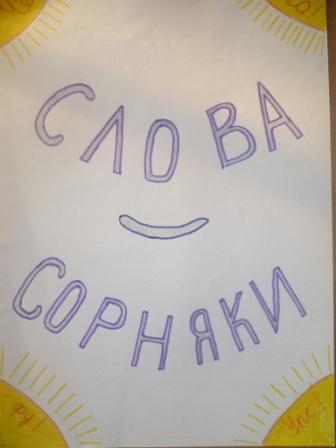 СЛОВА
СОРНЯКИ
Фу!
Упс!